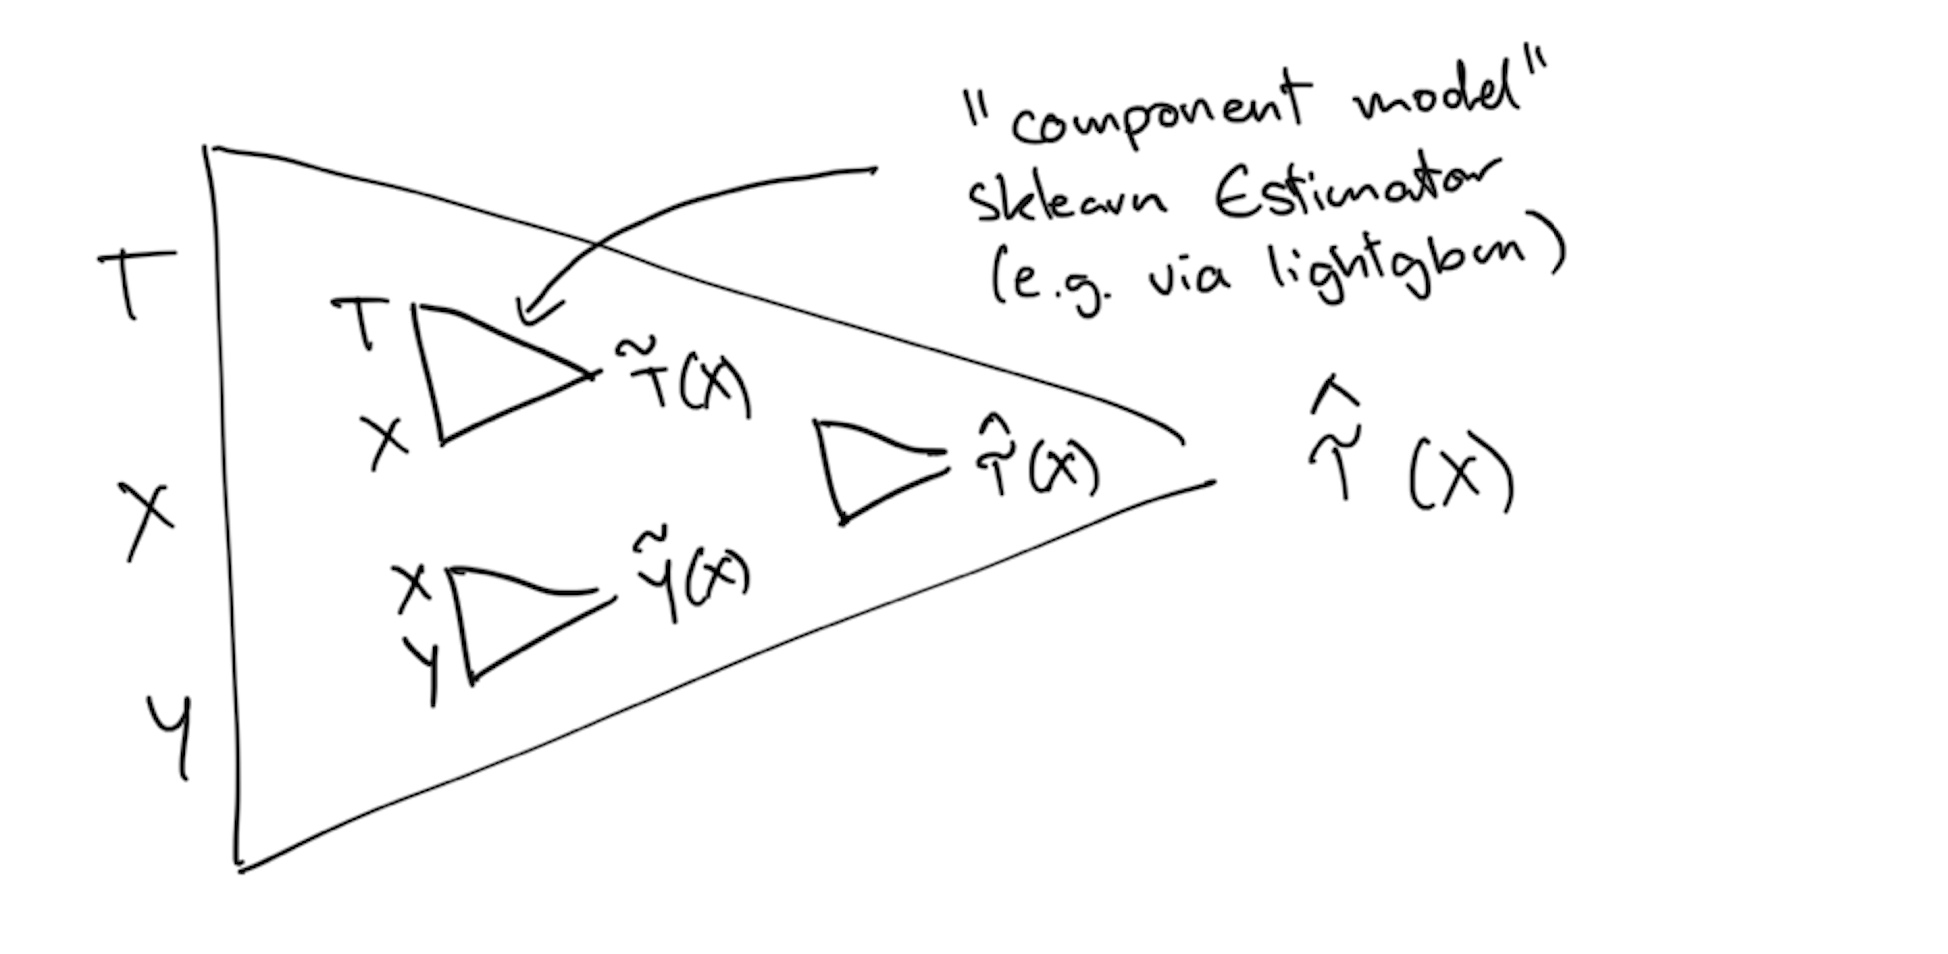 "component model"
sklearn Estimator
(e.g. via lightgbm)
T
T
X
T̃(X)
X
X
Y
Ỹ(X)
τ̂(X)
τ̂(X)
Y